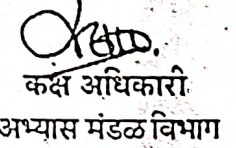 कक्ष अधिकारी
अभ्यास मंडळ विभाग